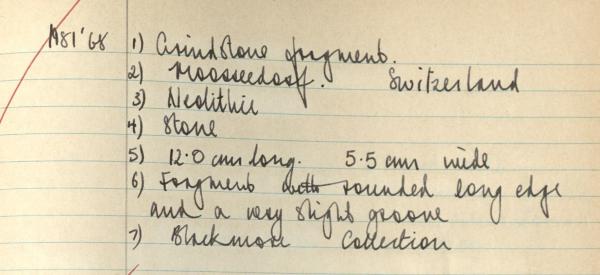 1981'68 1) Grindstone fragment.
2) Moosseedorf. Switzerland
3) Neolithic
4) Stone
5) 12.0 cm long. 5.5 cm wide
6) Fragment with rounded long edge
and a very slight groove
7) Blackmore Collection